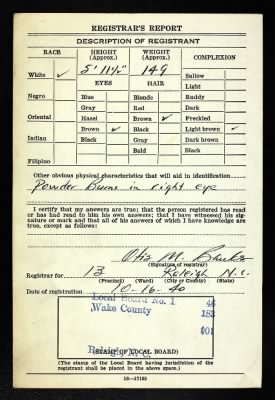 REGISTRAR'S REPORT
DESCRIPTION OF REGISTRANT
RACE HEIGHT (Approx.) WEIGHT (Approx.) COMPLEXION
White ✓ 5' 11½" 149 Sallow
EYES HAIR Light
Negro Blue Blonde Ruddy
Gray Red Dark
Oriental Hazel Brown ✓ Freckled
Brown ✓ Black Light brown ✓
Indian Black Gray Dark brown
Bald Black
Filipino
Other obvious physical characteristics that will aid in identification
Powder Burns in right eye
I certify that my answers are true; that the person registered has read or has had read to him his own answers; that I have witnessed his signature or mark and that all of his answers of which I have knowledge are true, except as follows:
Otis M.
(Signature of registrar)
Registrar for 13 Raleigh N.C.
(Precinct) (Ward) (City or County) (State)
Date of registration 10-16-40
Local Board No. 1 46
Wake County 183
001
Raleigh
(STAMP OF LOCAL BOARD)
(The stamp of the Local Board having jurisdiction of the
registrant shall be placed in the above space.)
16—17105